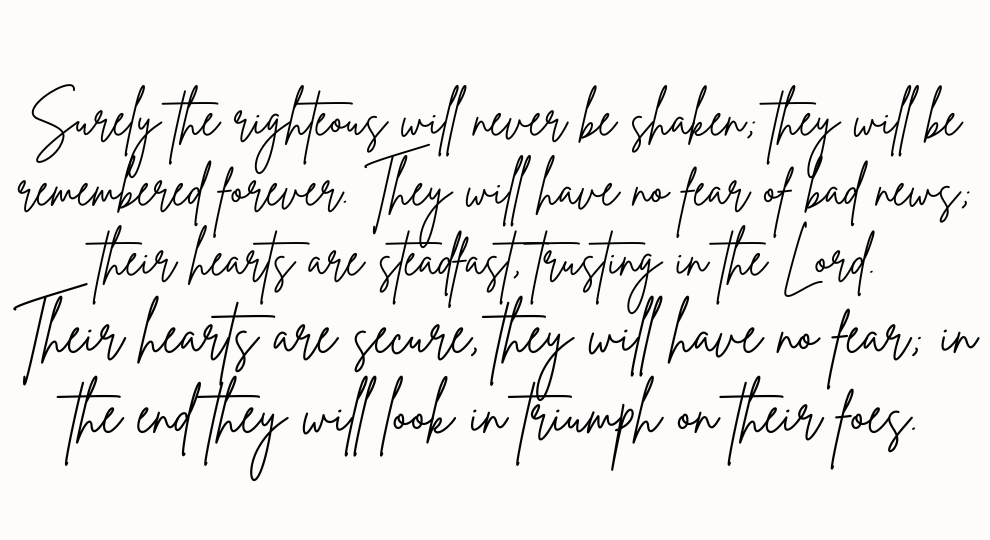 Surely the righteous will never be shaken; they will be
remembered forever. They will have no fear of bad news;
their hearts are steadfast, trusting in the Lord.
Their hearts are secure, they will have no fear; in
the end they will look in triumph on their foes.